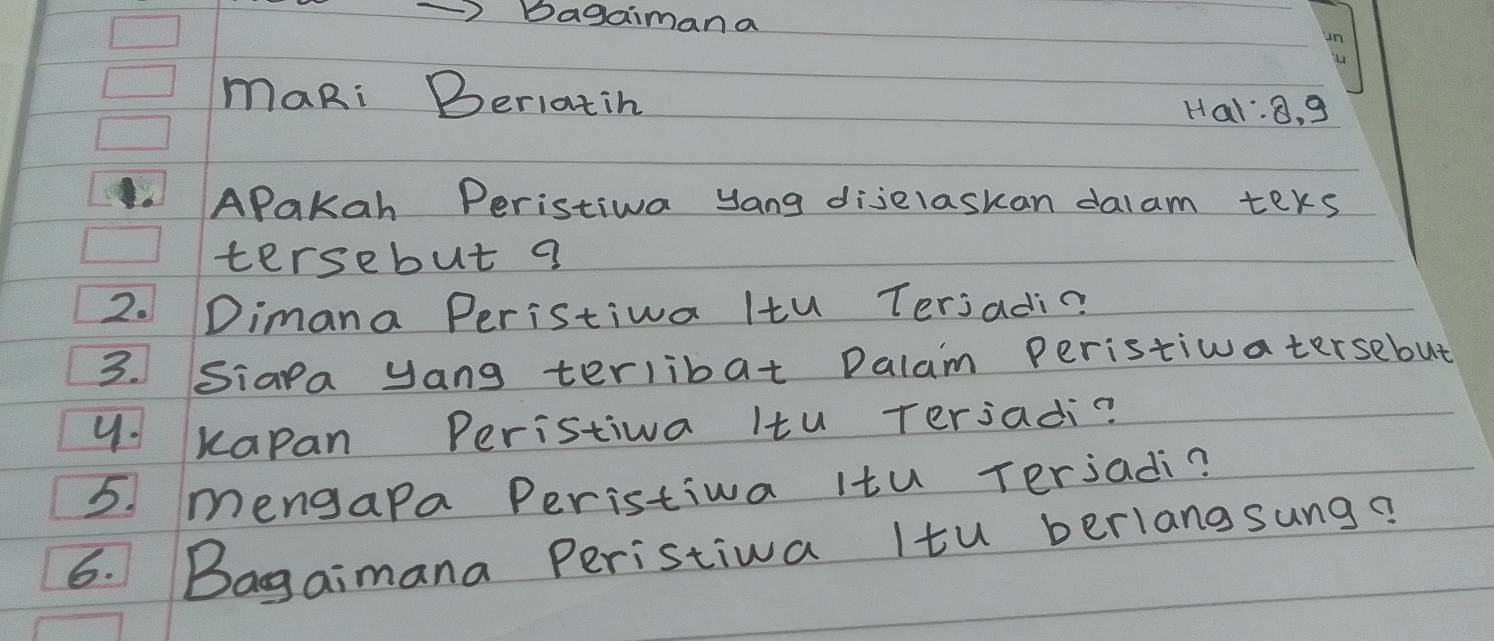 → Bagaimana
maRi Berlatih
Hal: 8,9
1. APakah Peristiwa yang dijelaskan dalam teks
tersebut ?
2. Dimana Peristiwa Itu Terjadi?
3. Siapa yang terlibat Dalam Peristiwa tersebut
4. Kapan Peristiwa Itu Terjadi?
5. mengapa Peristiwa Itu Terjadi?
6. Bagaimana Peristiwa Itu berlangsung?